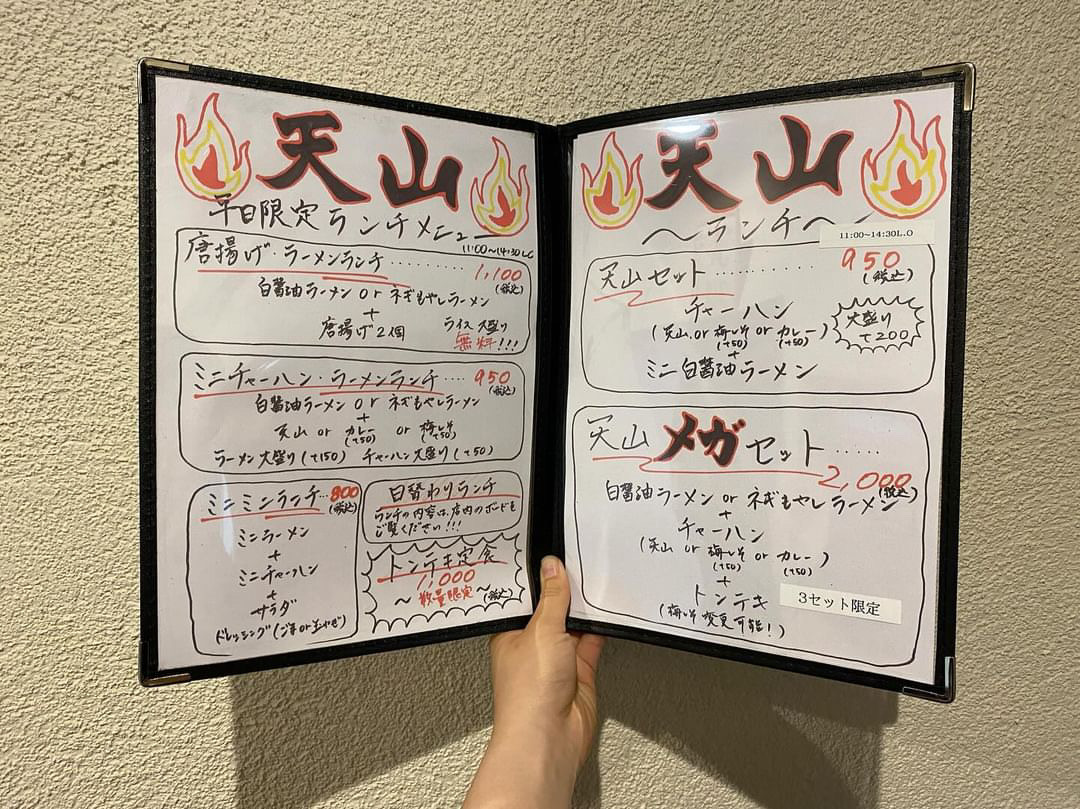 天山
早日限定ランチメニュー
11:00~14:30L.O
唐揚げ・ラーメンランチ・・・・・・・・・1,100
(税込)
白醤油ラーメン or ネギもやしラーメン
+
唐揚げ2個
ライス大盛り
無料!!!
ミニチャーハン・ラーメンランチ・・・・950
(税込)
白醤油ラーメン or ネギもやしラーメン
+
天山 or カレー or 梅しそ
(+50) (+50)
ラーメン大盛り(+150) チャーハン大盛り(+50)
ミニミニランチ・・・800
(税込)
ミニラーメン
+
ミニチャーハン
+
サラダ
ドレッシング(ごまor玉ねぎ)
日替わりランチ
ランチの内容は、店内のボードを
ご覧ください!!!
トンテキ定食
1,000
~数量限定~(税込)
天山
~ランチ~
11:00~14:30L.O
天山セット・・・・・・・・・・950
(税込)
チャーハン
(天山 or 梅しそ or カレー)
(+50) (+50)
+
ミニ白醤油ラーメン
大盛り
+200
天山メガセット・・・・・
2,000
(税込)
白醤油ラーメン or ネギもやしラーメン
+
チャーハン
(天山 or 梅しそ or カレー)
(+50) (+50)
+
トンテキ
(梅しそ変更可能!)
3セット限定